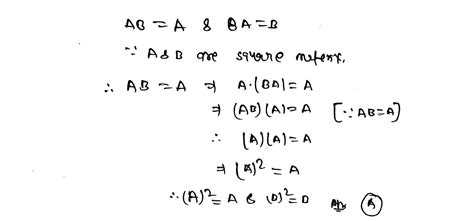 AB = A & BA = B
∵ A & B are square matrix.
∴ AB = A ⇒ A·(BA) = A
⇒ (AB)(A) = A [∵ AB = A]
∴ (A)(A) = A
⇒ (A)² = A
∴ (A)² = A & (B)² = B Ans (A)